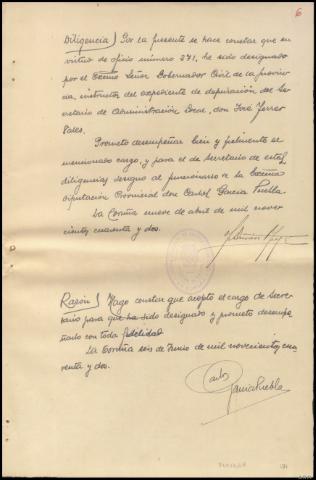 6
Diligencia) Por la presente se hace constar que en
virtud de oficio número 271, ha sido designado
por el Excmo Señor Gobernador Civil de la provin
cia, instructor del expediente de depuración del Se-
cretario de Administración Local, don José Ferrer
Prometo desempeñar bien y fielmente el
mencionado cargo, y para el de Secretario de estas
diligencias designo al funcionario de la Excma
Diputación Provincial don Carlos Garcia Puebla
La Coruña nueve de abril de mil nove-
cientos cuarenta y dos.
Razón) Hago constar que acepto el cargo de Secre-
tario para que ha sido designado y prometo desempe-
ñarlo con toda fidelidad.
La Coruña seis de Junio de mil novecientos cua-
renta y dos.
Carlos
Garcia Puebla